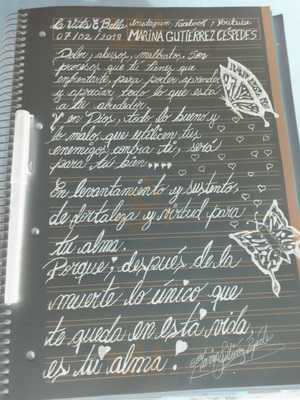 La Vida es Bella Instagram Facebook y Youtube
07/02/2018 MARINA GUTIERREZ CESPEDES
Dolor, abusos, maltratos. Son
procesos que te tienes que
enfrentarte, para poder aprender
y apreciar todo lo que esta
a tu alrededor.
Y en Dios, todo lo bueno y
lo malo, que utilicen tus
enemigos contra ti, será
para tu bien,,,,
En levantamiento y sustento,
de fortaleza y virtud para
tu alma.
Porque, después de la
muerte lo único que
te queda en esta vida,
es tu alma.